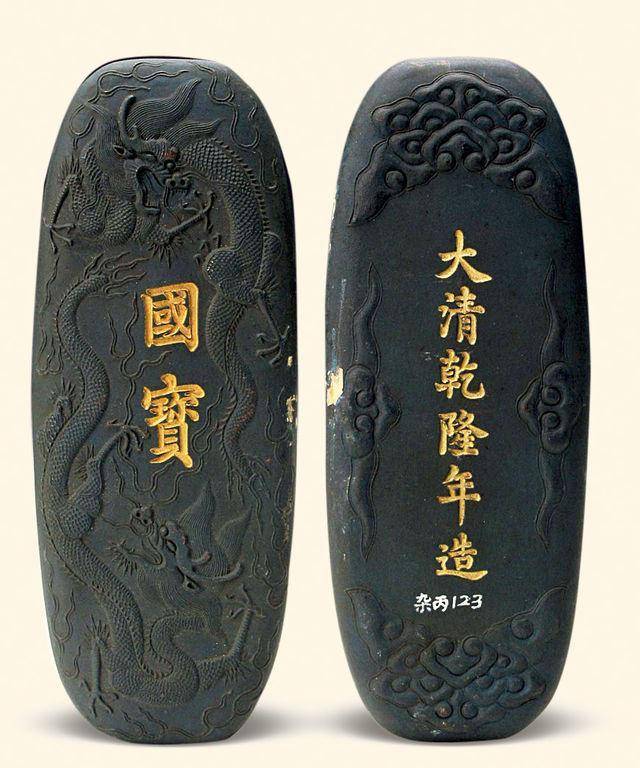 國寶
大清乾隆年造
杂丙123